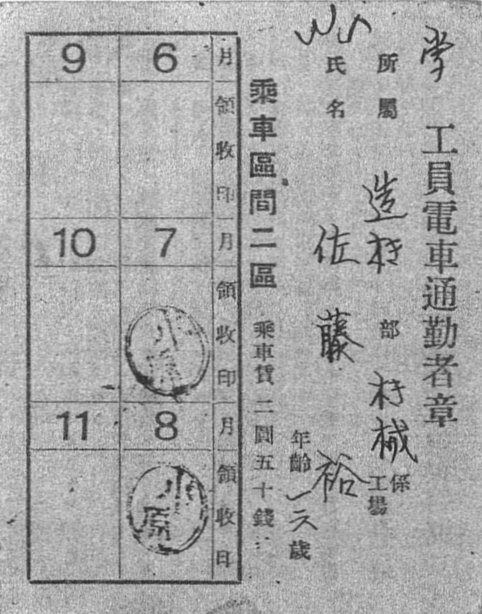 工員電車通勤者章
所屬 造机部 机械係工場
氏名 佐藤裕
年齡一六歲
乘車區間二區 乘車賃二圓五十錢
月 領收印
6
9
月 領收印
7
10
小原
月 領收日
8
11
小原